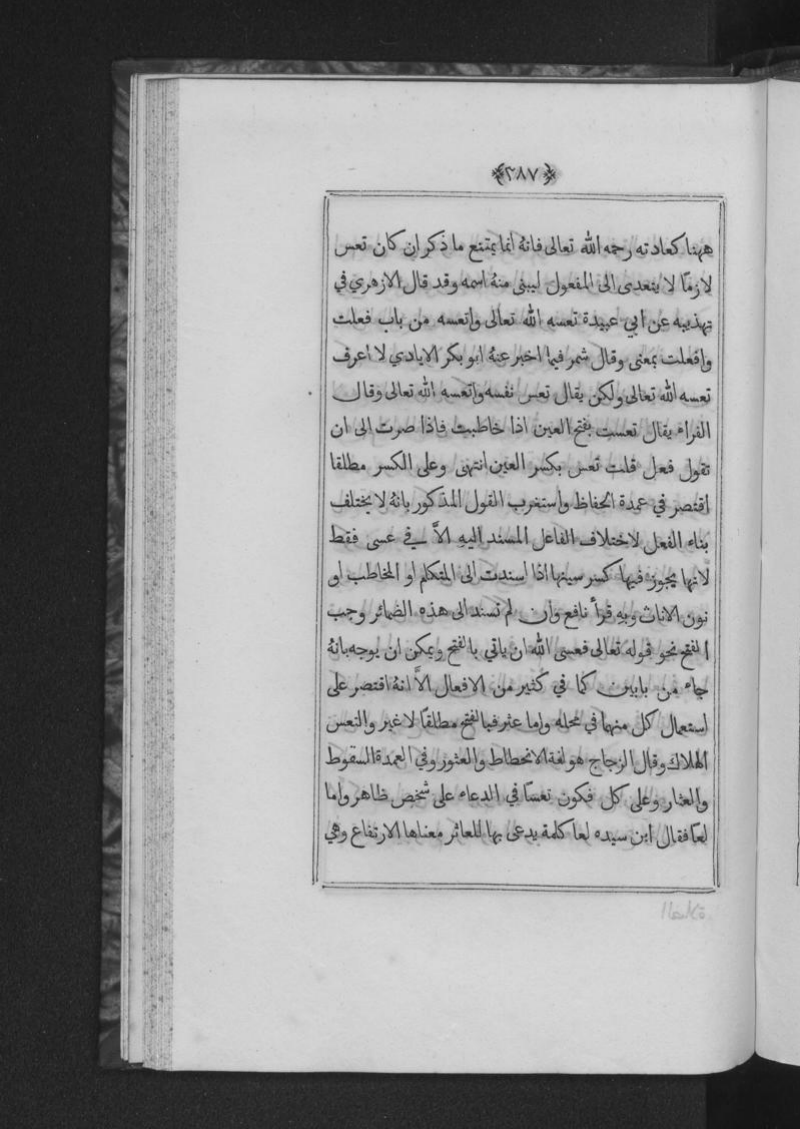 ﴿٢٨٧﴾
ههنا كعادته رحمه الله تعالى فانهُ انما يمتنع ما ذكر ان كان تعس
لازمًا لا يتعدى الى المفعول ليبنى منهُ اسمه وقد قال الازهري في
تهذيبه عن ابي عبيدة تعسه الله تعالى واتعسه من باب فعلت
وافعلت بمعنى وقال شمر فيما اخبر عنهُ ابو بكر الايادي لا اعرف
تعسه الله تعالى ولكن يقال تعس نفسه واتعسه الله تعالى وقال
الفراء يقال تعست بفتح العين اذا خاطبت فاذا صرت الى ان
تقول فعل قلت تعس بكسر العين انتهى وعلى الكسر مطلقا
اقتصر في عمدة الحفاظ واستغرب القول المذكور بانهُ لا يختلف
بناء الفعل لاختلاف الفاعل المسند اليهِ الاَّ في عسى فقط
لانها يجوز فيها كسر سينها اذا اسندت الى المتكلم او المخاطب او
نون الاناث وبهِ قرأ نافع وان لم تسند الى هذه الضمائر وجب
الفتح نحو قوله تعالى فعسى الله ان ياتي بالفتح ويمكن ان يوجه بانهُ
جاء من بابين كما في كثير من الافعال الاَّ انهُ اقتصر على
استعمال كل منهما في محله واما عثر فبالفتح مطلقًا لا غير والتعس
الهلاك وقال الزجاج هو لغة الانحطاط والعثور وفي العمدة السقوط
والعثار وعلى كل فكون تعسًا في الدعاء على شخص ظاهر واما
لعًا فقال ابن سيده لعا كلمة يدعى بها للعاثر معناها الارتفاع وهي